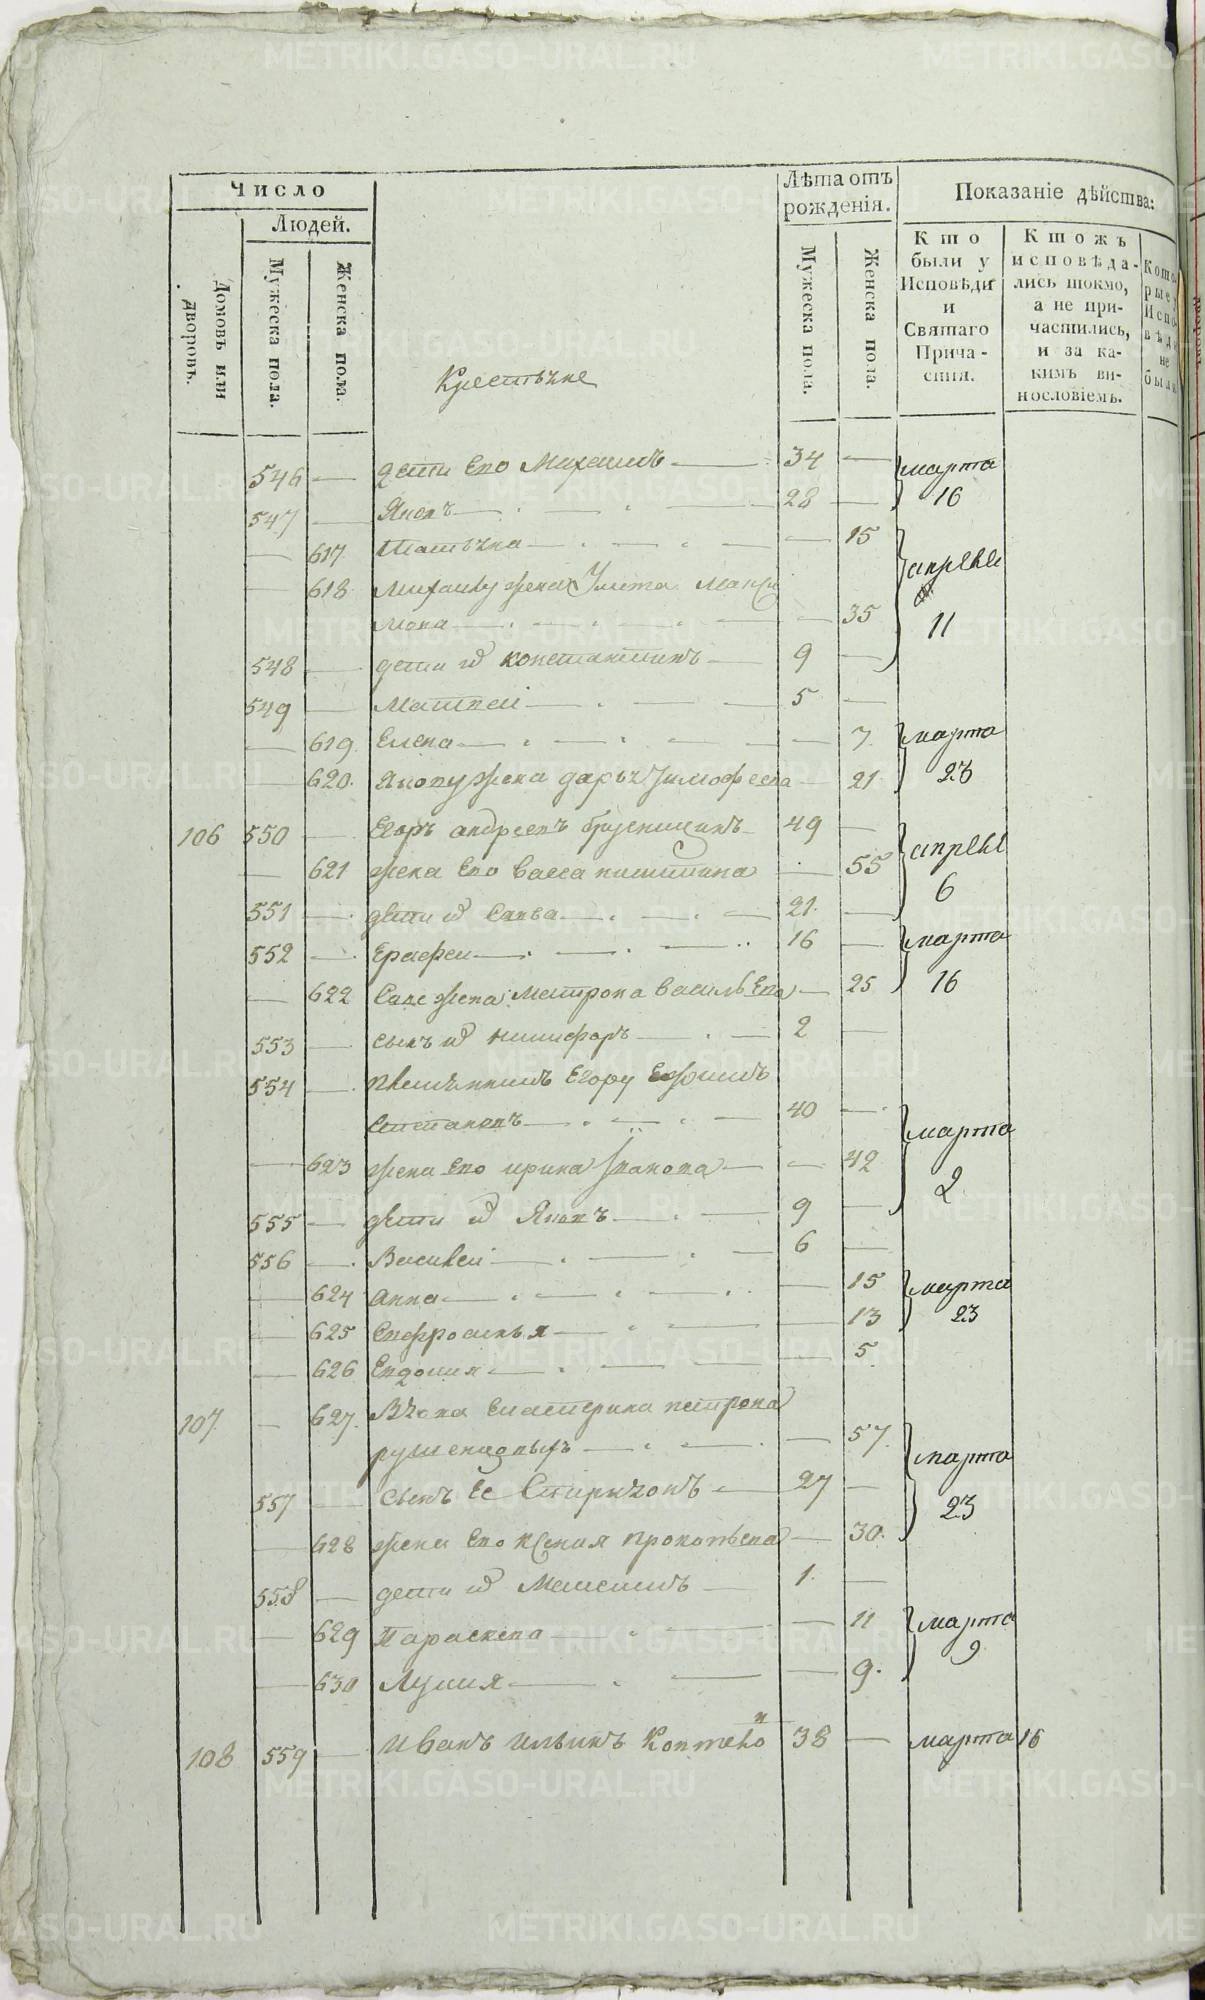 Число
Людей.
Домовъ или дворовъ.
Мужеска пола.
Женска пола.
Крестьяне
Лѣта отъ
рожденія.
Мужеска пола.
Женска пола.
Показаніе дѣйства:
Кто
были у
Исповѣди
и
Святаго
Прича-
стія.
Ктожъ
исповѣда-
лись токмо,
а не при-
частились,
и за ка-
кимъ ви-
нословіемъ.
Кото
рые
Испо
вѣд
не
были
546 дети Его Михаилъ 34 марта
547 28 16
617 Татьяна 15 апреля
618 Михаилу жена Улита Макси
мова 35 11
548 дети их Константинъ 9
549 Матвей 5
619 Елена 7 марта
620 жена Дарья Тимофеева 21 23
106 550 Егоръ Андреевъ Брусницынъ 49 апреля
621 жена Его Васса Никитина 55 6
551 дети их Савва 21
552 Ерофеи 16 марта
622 Саве жена Матрона Васильева 25 16
553 сынъ их Никифоръ 2
554 племянникъ Егору Ефимъ
Степановъ 40 марта
623 жена Его Ирина Иванова 42 2
555 дети их 9
556 Василей 6
624 Анна 15 марта
625 Евфросинья 13 23
626 Евдокия 5
107 627 Вдова Екатерина Петрова
57 марта
557 сынъ Ее Спиридонъ 27 23
628 жена Его Ксения Прокопьева 30
558 дети их 1
629 Параскева 11 марта
630 Лукия 9 9
108 559 Иванъ Ильинъ Коптело в 38 марта 16
METRIKI.GASO-URAL.RU